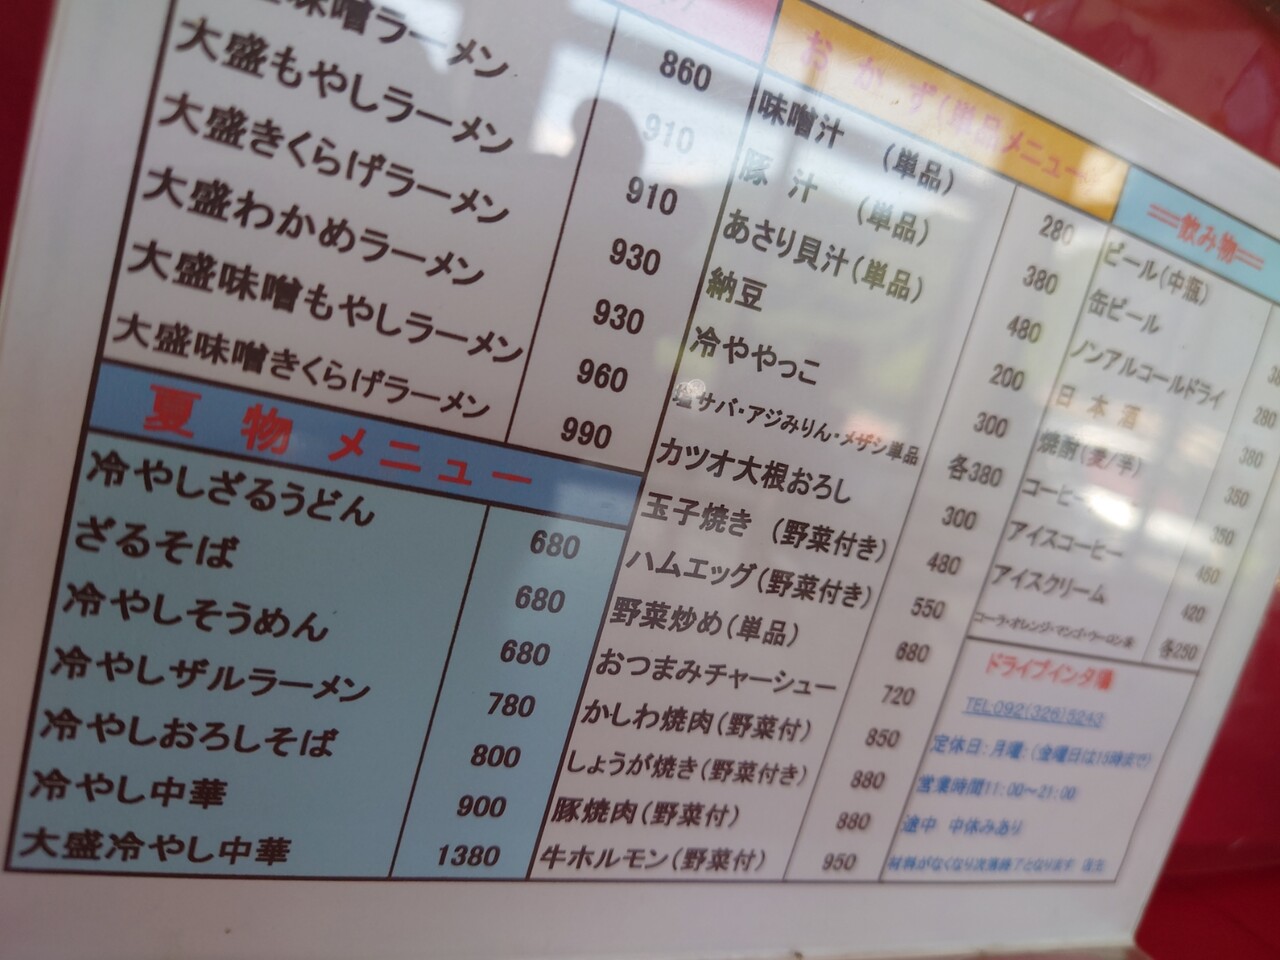 味噌ラーメン 860
大盛もやしラーメン 910
大盛きくらげラーメン 910
大盛わかめラーメン 930
大盛味噌もやしラーメン 930
大盛味噌きくらげラーメン 960
990
夏物メニュー
冷やしざるうどん 680
ざるそば 680
冷やしそうめん 680
冷やしザルラーメン 780
冷やしおろしそば 800
冷やし中華 900
大盛冷やし中華 1380
おかず(単品メニュー)
味噌汁 (単品) 280
豚汁 (単品) 380
あさり貝汁(単品) 480
納豆 200
冷ややっこ 300
塩サバ・アジみりん・メザシ単品 各380
カツオ大根おろし 300
玉子焼き (野菜付き) 480
ハムエッグ(野菜付き) 550
野菜炒め(単品) 680
おつまみチャーシュー 720
かしわ焼肉(野菜付) 850
しょうが焼き(野菜付き) 880
豚焼肉(野菜付) 880
牛ホルモン(野菜付) 950
==飲み物==
ビール(中瓶)
缶ビール
ノンアルコールドライ 280
日本酒 380
焼酎(麦/芋) 350
コーヒー 350
アイスコーヒー 450
アイスクリーム 420
コーラ・オレンジ・マンゴ・ウーロン茶 各250
ドライブイン夕陽
TEL:092(326)5243
定休日:月曜:(金曜日は15時まで)
営業時間11:00~21:00
途中 中休みあり
材料がなくなり次第終了となります 店主